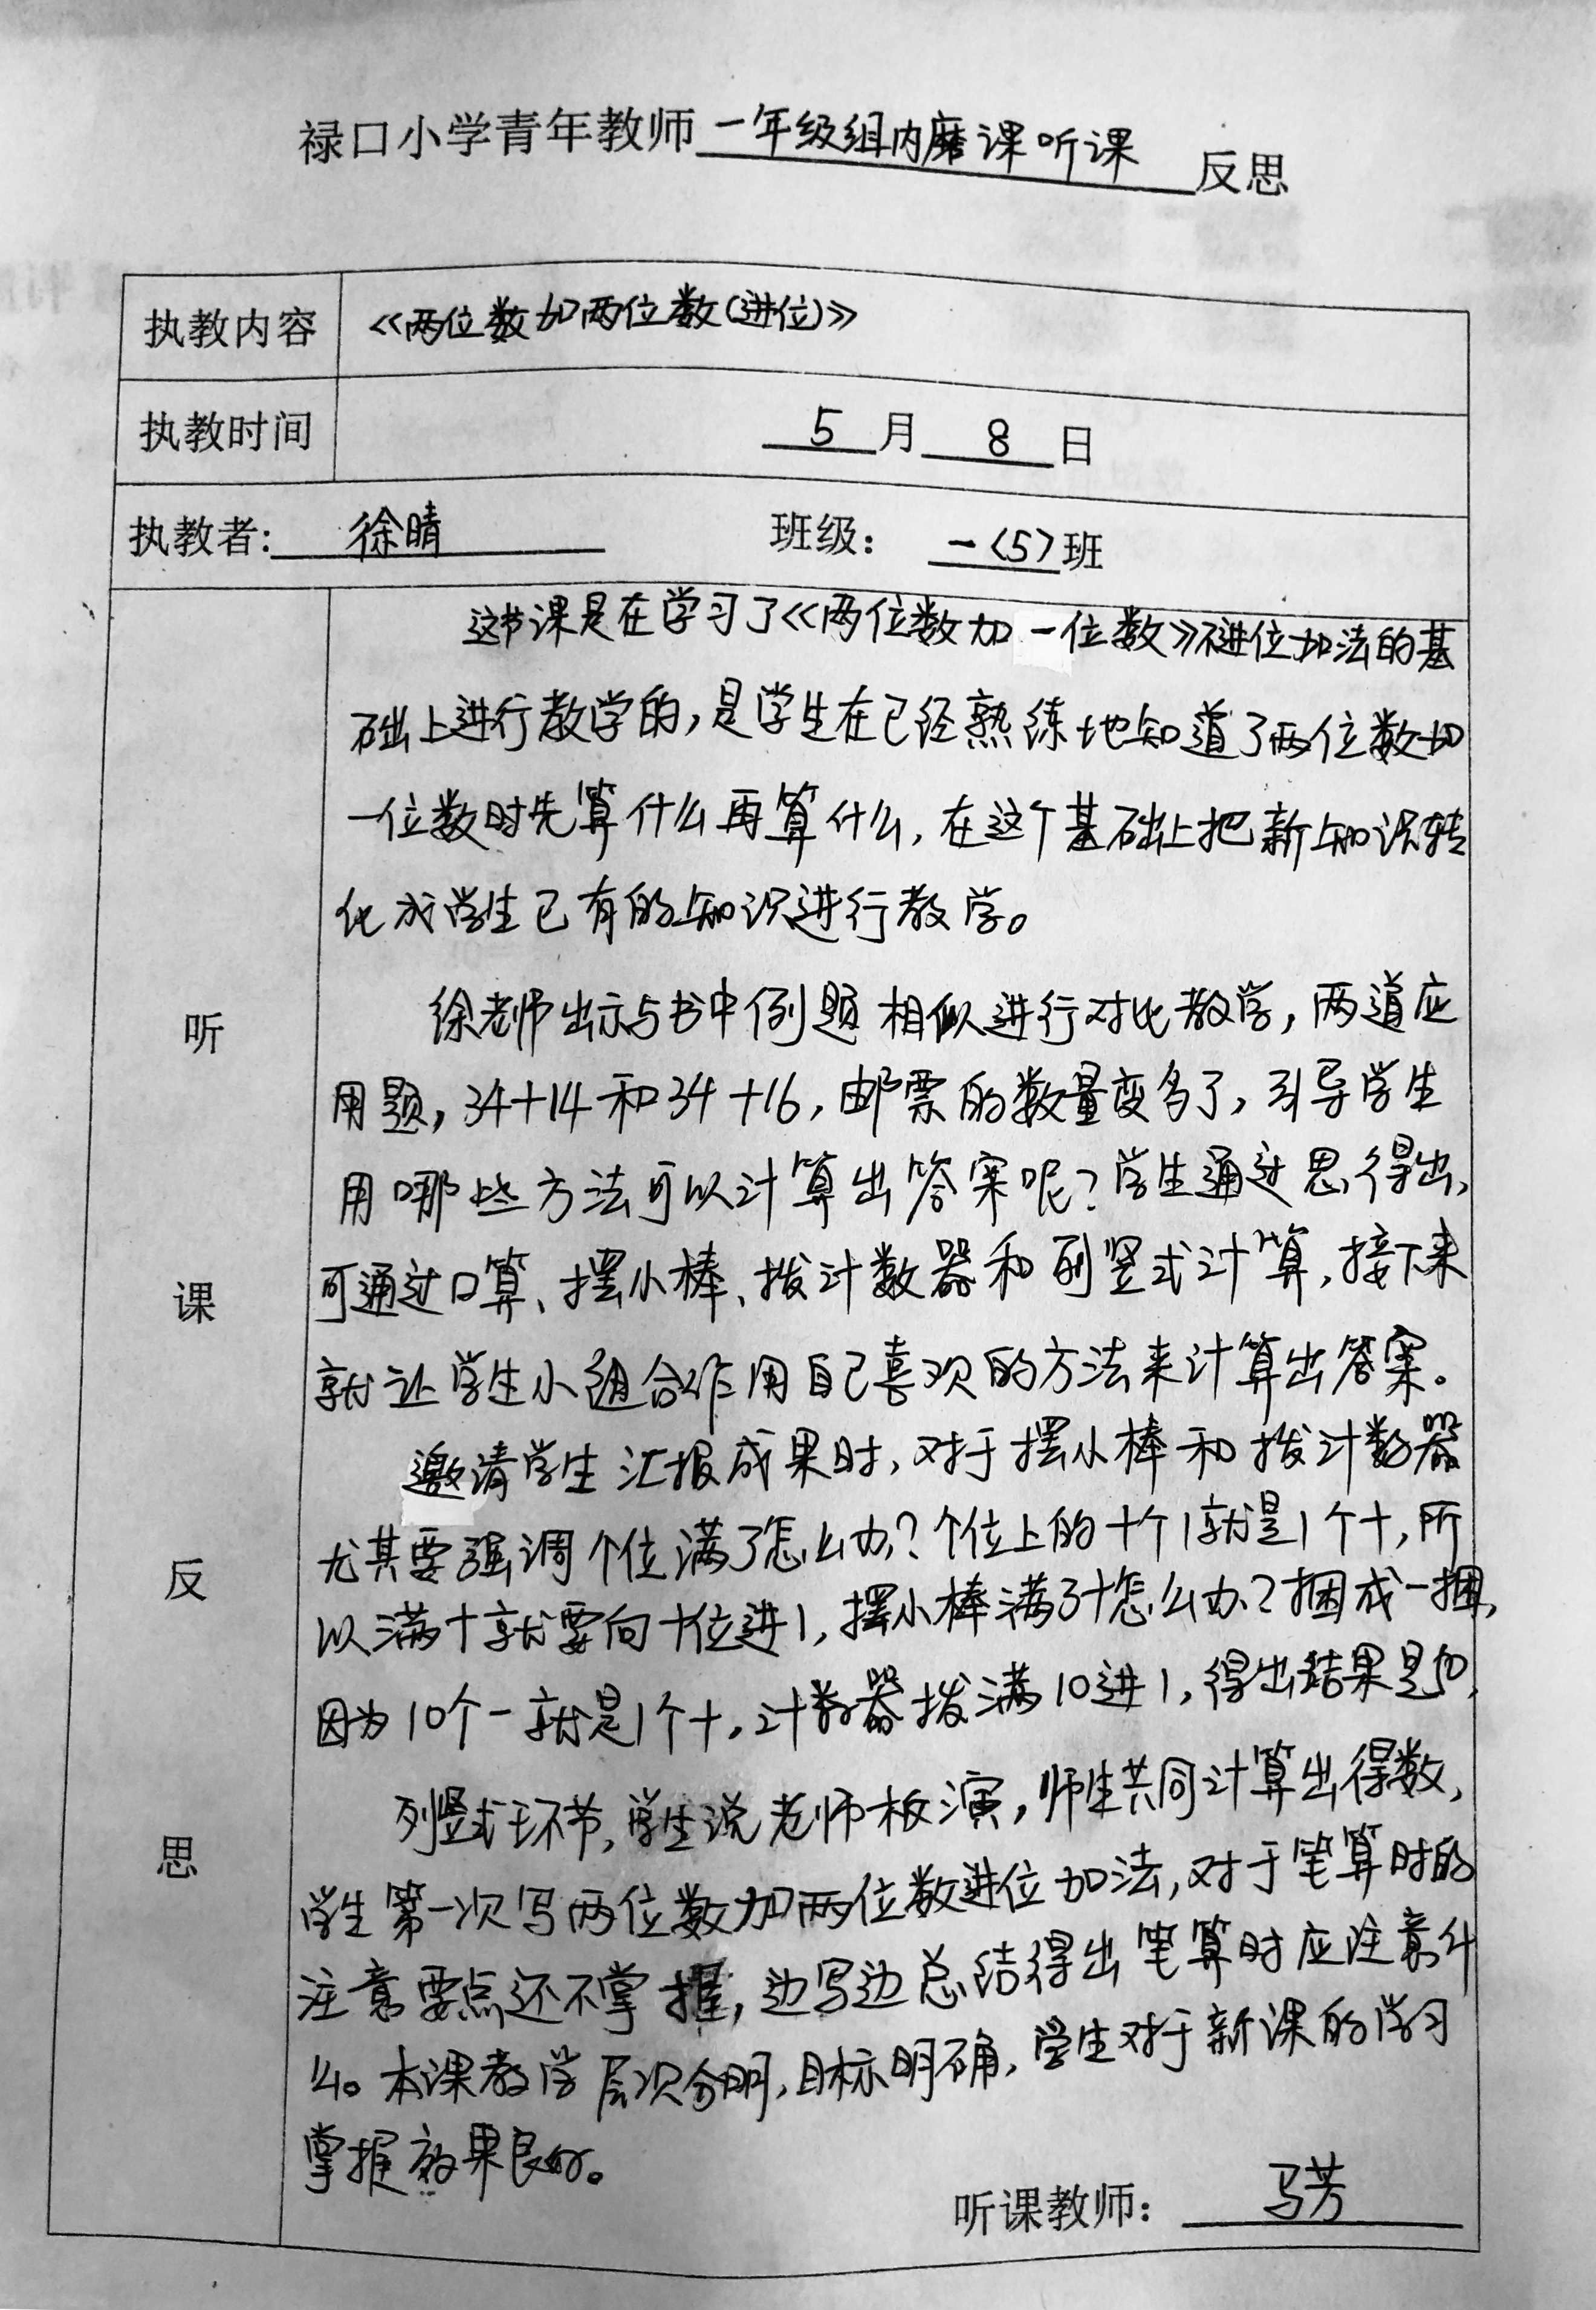 禄口小学青年教师一年级组内磨课听课反思
执教内容 《两位数加两位数(进位)》
执教时间 5月8日
执教者:徐晴 班级：一〈5〉班
听课反思
这节课是在学习了《两位数加一位数》不进位加法的基
础上进行教学的，是学生在已经熟练地知道了两位数加
一位数时先算什么再算什么，在这个基础上把新知识转
化成学生已有的知识进行教学。
徐老师出示与书中例题相似进行对比教学，两道应
用题，34+14和34+16，邮票的数量变多了，引导学生
用哪些方法可以计算出答案呢？学生通过思得出，
可通过口算、摆小棒、拨计数器和列竖式计算，接下来
就让学生小组合作用自己喜欢的方法来计算出答案。
邀请学生汇报成果时，对于摆小棒和拨计数器
尤其要强调个位满了怎么办？个位上的十个1就是1个十，所
以满十就要向十位进1，摆小棒满了十怎么办？捆成一捆，
因为10个一就是1个十，计数器拨满10进1，得出结果是50，
列竖式环节，学生说老师板演，师生共同计算出得数，
学生第一次写两位数加两位数进位加法，对于笔算时的
注意要点还不掌握，边写边总结得出笔算时应注意什
么。本课教学层次分明，目标明确，学生对于新课的学习
掌握效果良好。
听课教师：马芳